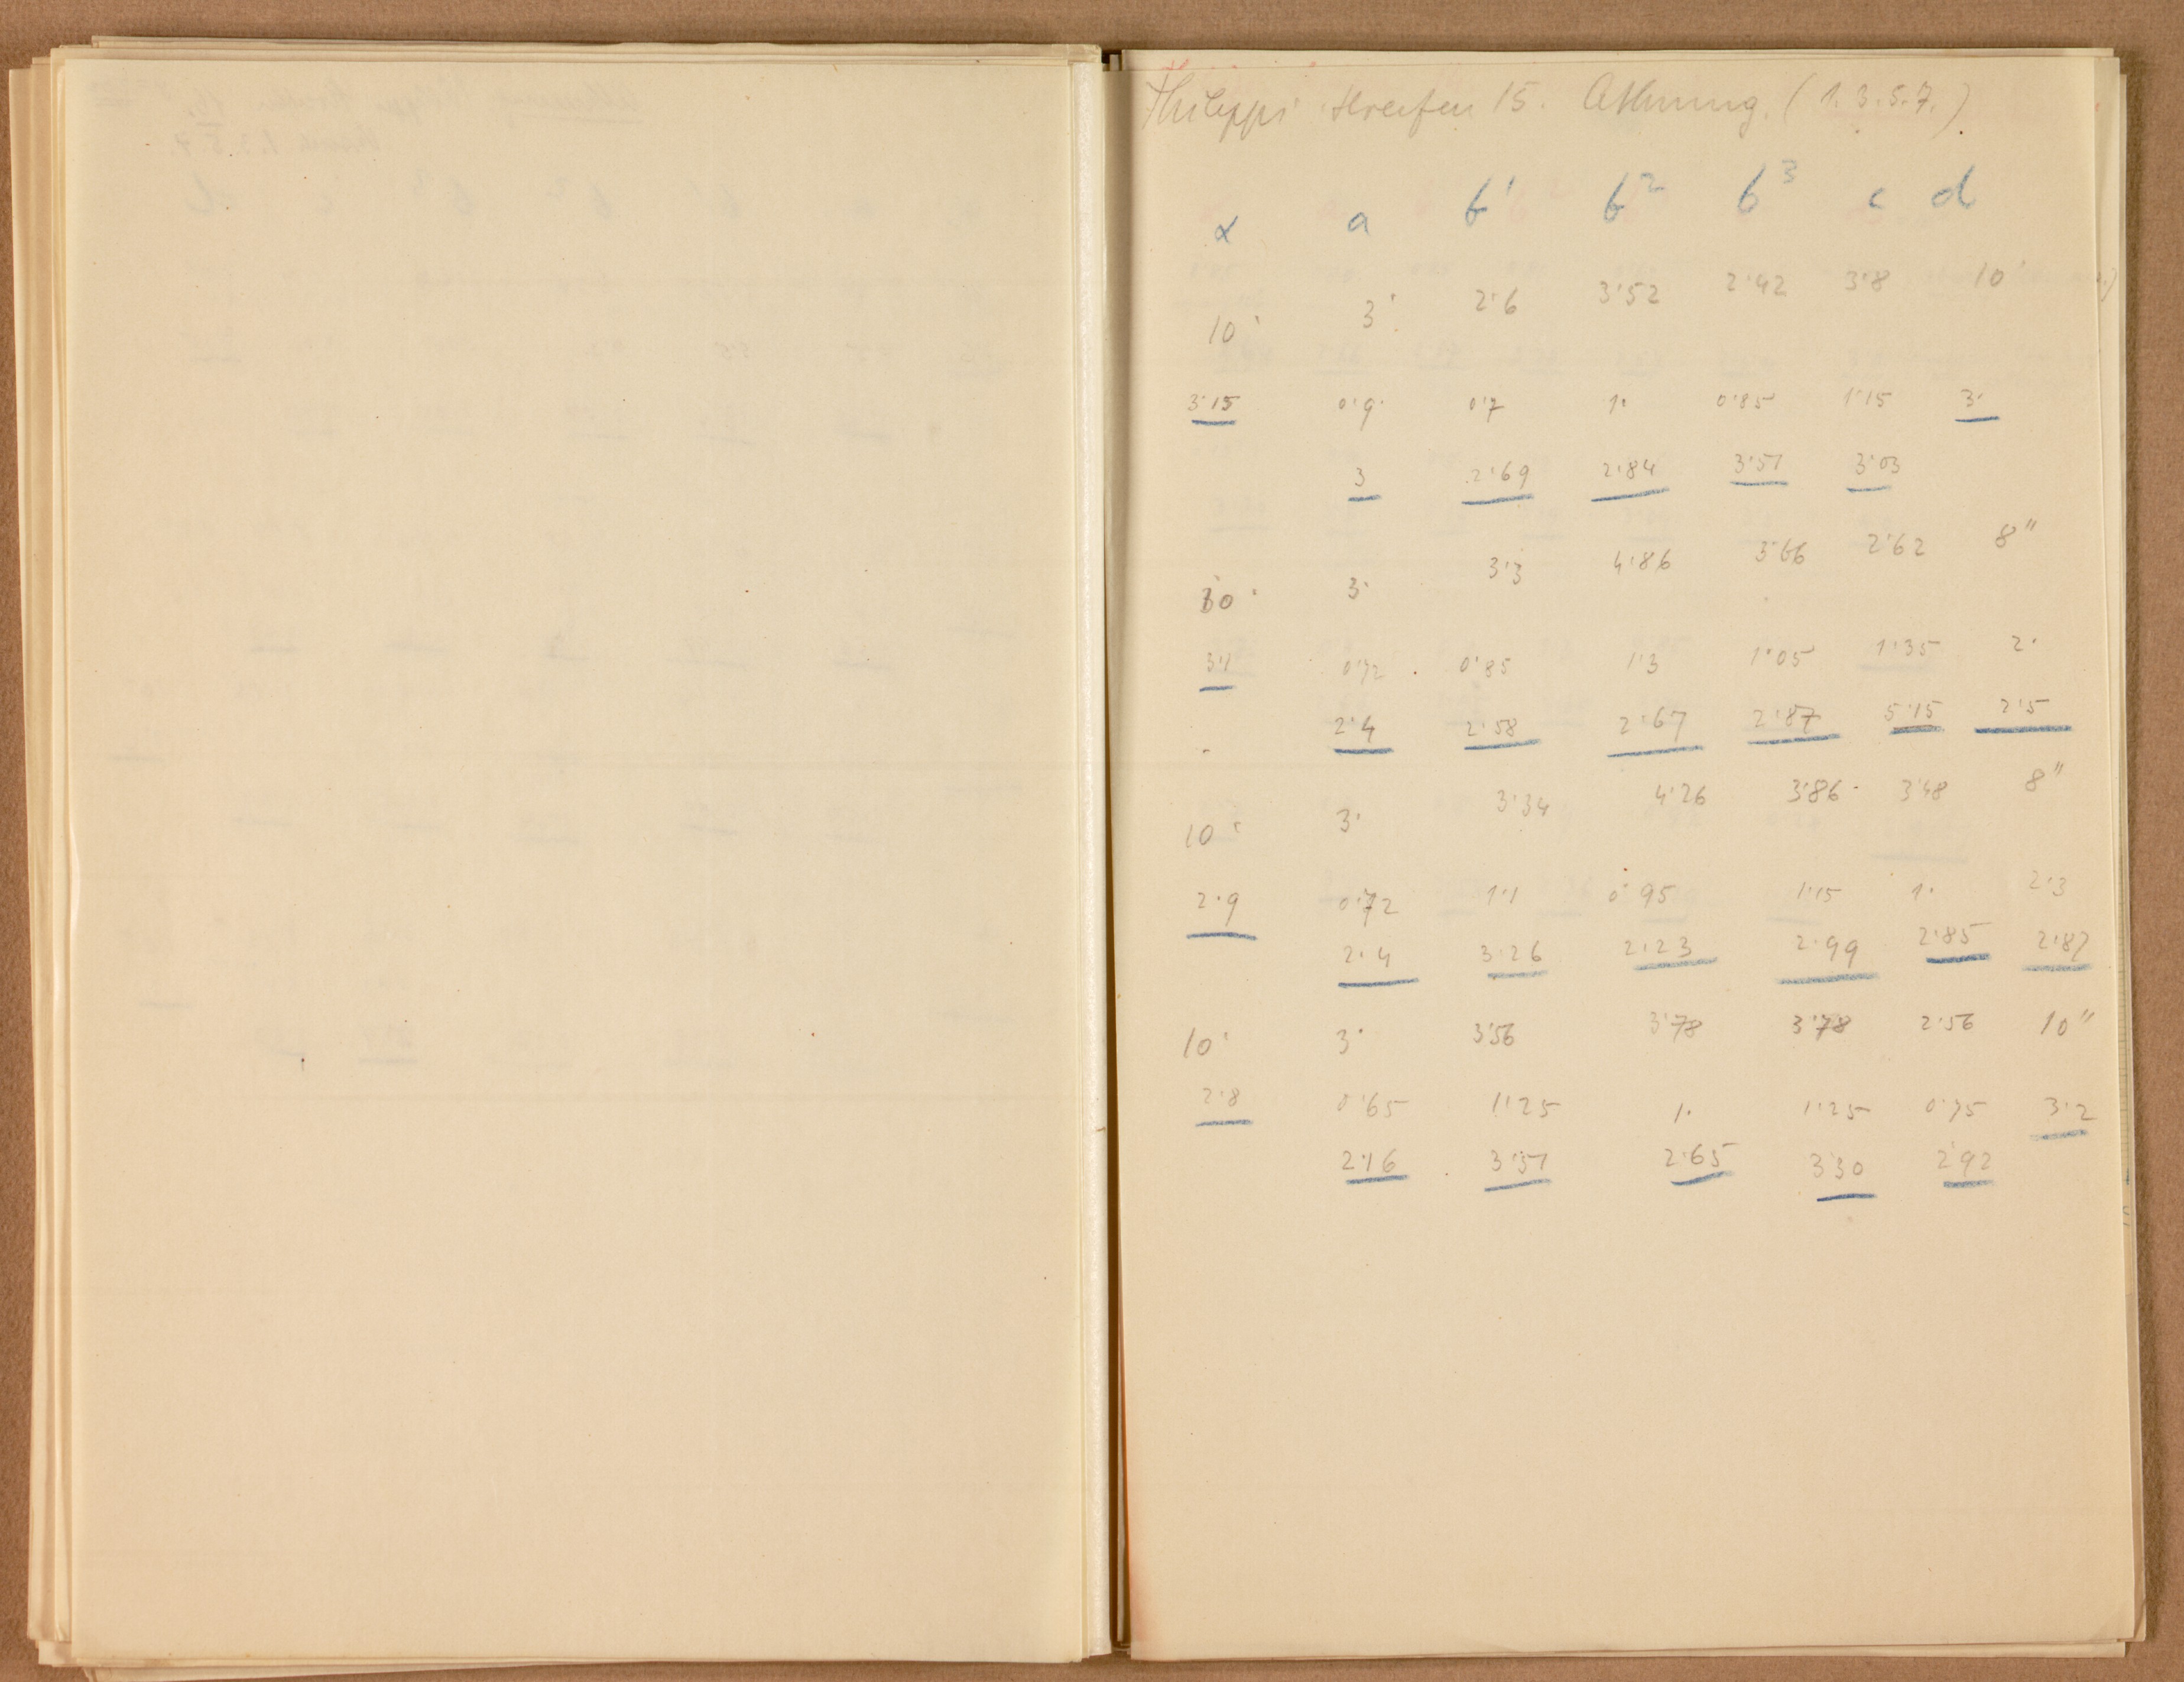 Philippi Streifen 15. Athmung. (1.3.5.7.)
α a b¹ b² b³ c d
10' 3' 2·6 3·52 2·42 3·8 10'
3·15 0·9 0·7 1· 0·85 1·15 3·
3 2·69 2·84 3·51 3·03
10' 3· 3·3 4·86 3·66 2·62 8"
3·1 0·72 0·85 1·3 1·05 1·35 2·
2·4 2·58 2·67 2·87 5·15 2·5
10' 3· 3·34 4·26 3·86 3·48 8"
2·9 0·72 1·1 0·95 1·15 1· 2·3
2·4 3·26 2·23 2·99 2·85 2·87
10' 3· 3·56 3·78 3·78 2·56 10"
2·8 0·65 1·25 1· 1·25 0·75 3·2
2·16 3·51 2·65 3·30 2·92